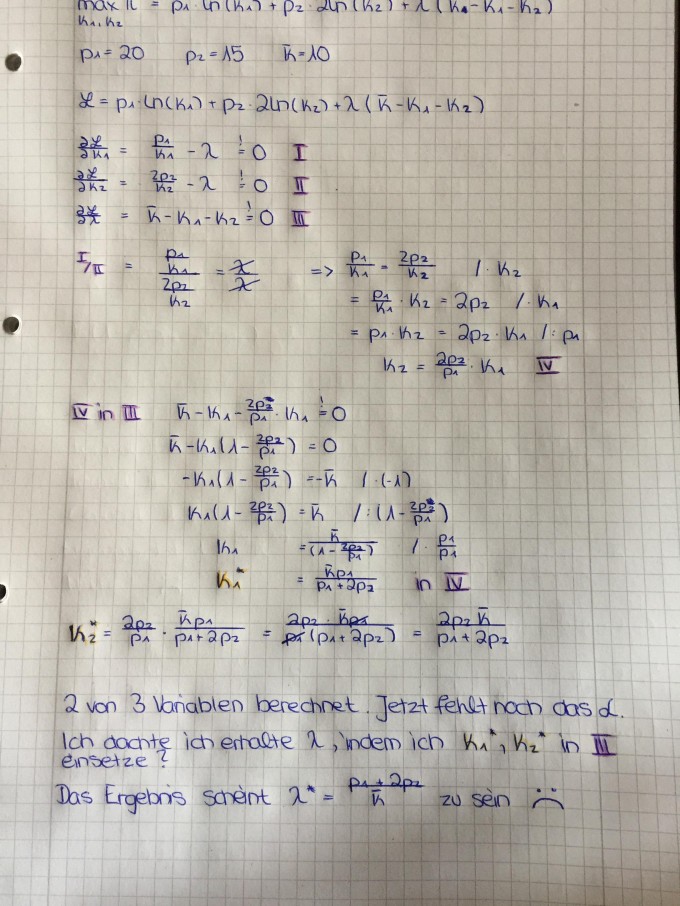 max π = p1·ln(K1) + p2·2ln(K2) + λ(K1-K1-K2)
K1,K2
p1=20 p2=15 K̄=10
ℒ = p1·ln(K1)+p2·2ln(K2)+λ(K̄-K1-K2)
∂ℒ/∂K1 = p1/K1 - λ =! 0 I
∂ℒ/∂K2 = 2p2/K2 - λ =! 0 II
∂ℒ/∂λ = K̄-K1-K2 =! 0 III
I/II = (p1/K1)/(2p2/K2) = λ/λ => p1/K1 = 2p2/K2 /·K2
= p1/K1·K2 = 2p2 /·K1
= p1·K2 = 2p2·K1 /:p1
K2 = 2p2/p1·K1 IV
IV in III K̄-K1-2p2/p1·K1 =! 0
K̄-K1(1-2p2/p1) = 0
-K1(1-2p2/p1) = -K̄ /·(-1)
K1(1-2p2/p1) = K̄ /:(1-2p2/p1)
K1 = K̄/(1-2p2/p1) /·p1/p1
K1* = K̄p1/p1+2p2 in IV
K2* = 2p2/p1 · K̄p1/p1+2p2 = 2p2·K̄p1/p1(p1+2p2) = 2p2K̄/p1+2p2
2 von 3 Variablen berechnet. Jetzt fehlt noch das λ.
Ich dachte ich erhalte λ, indem ich K1*, K2* in III
einsetze?
Das Ergebnis scheint λ* = p1+2p2/K̄ zu sein :(